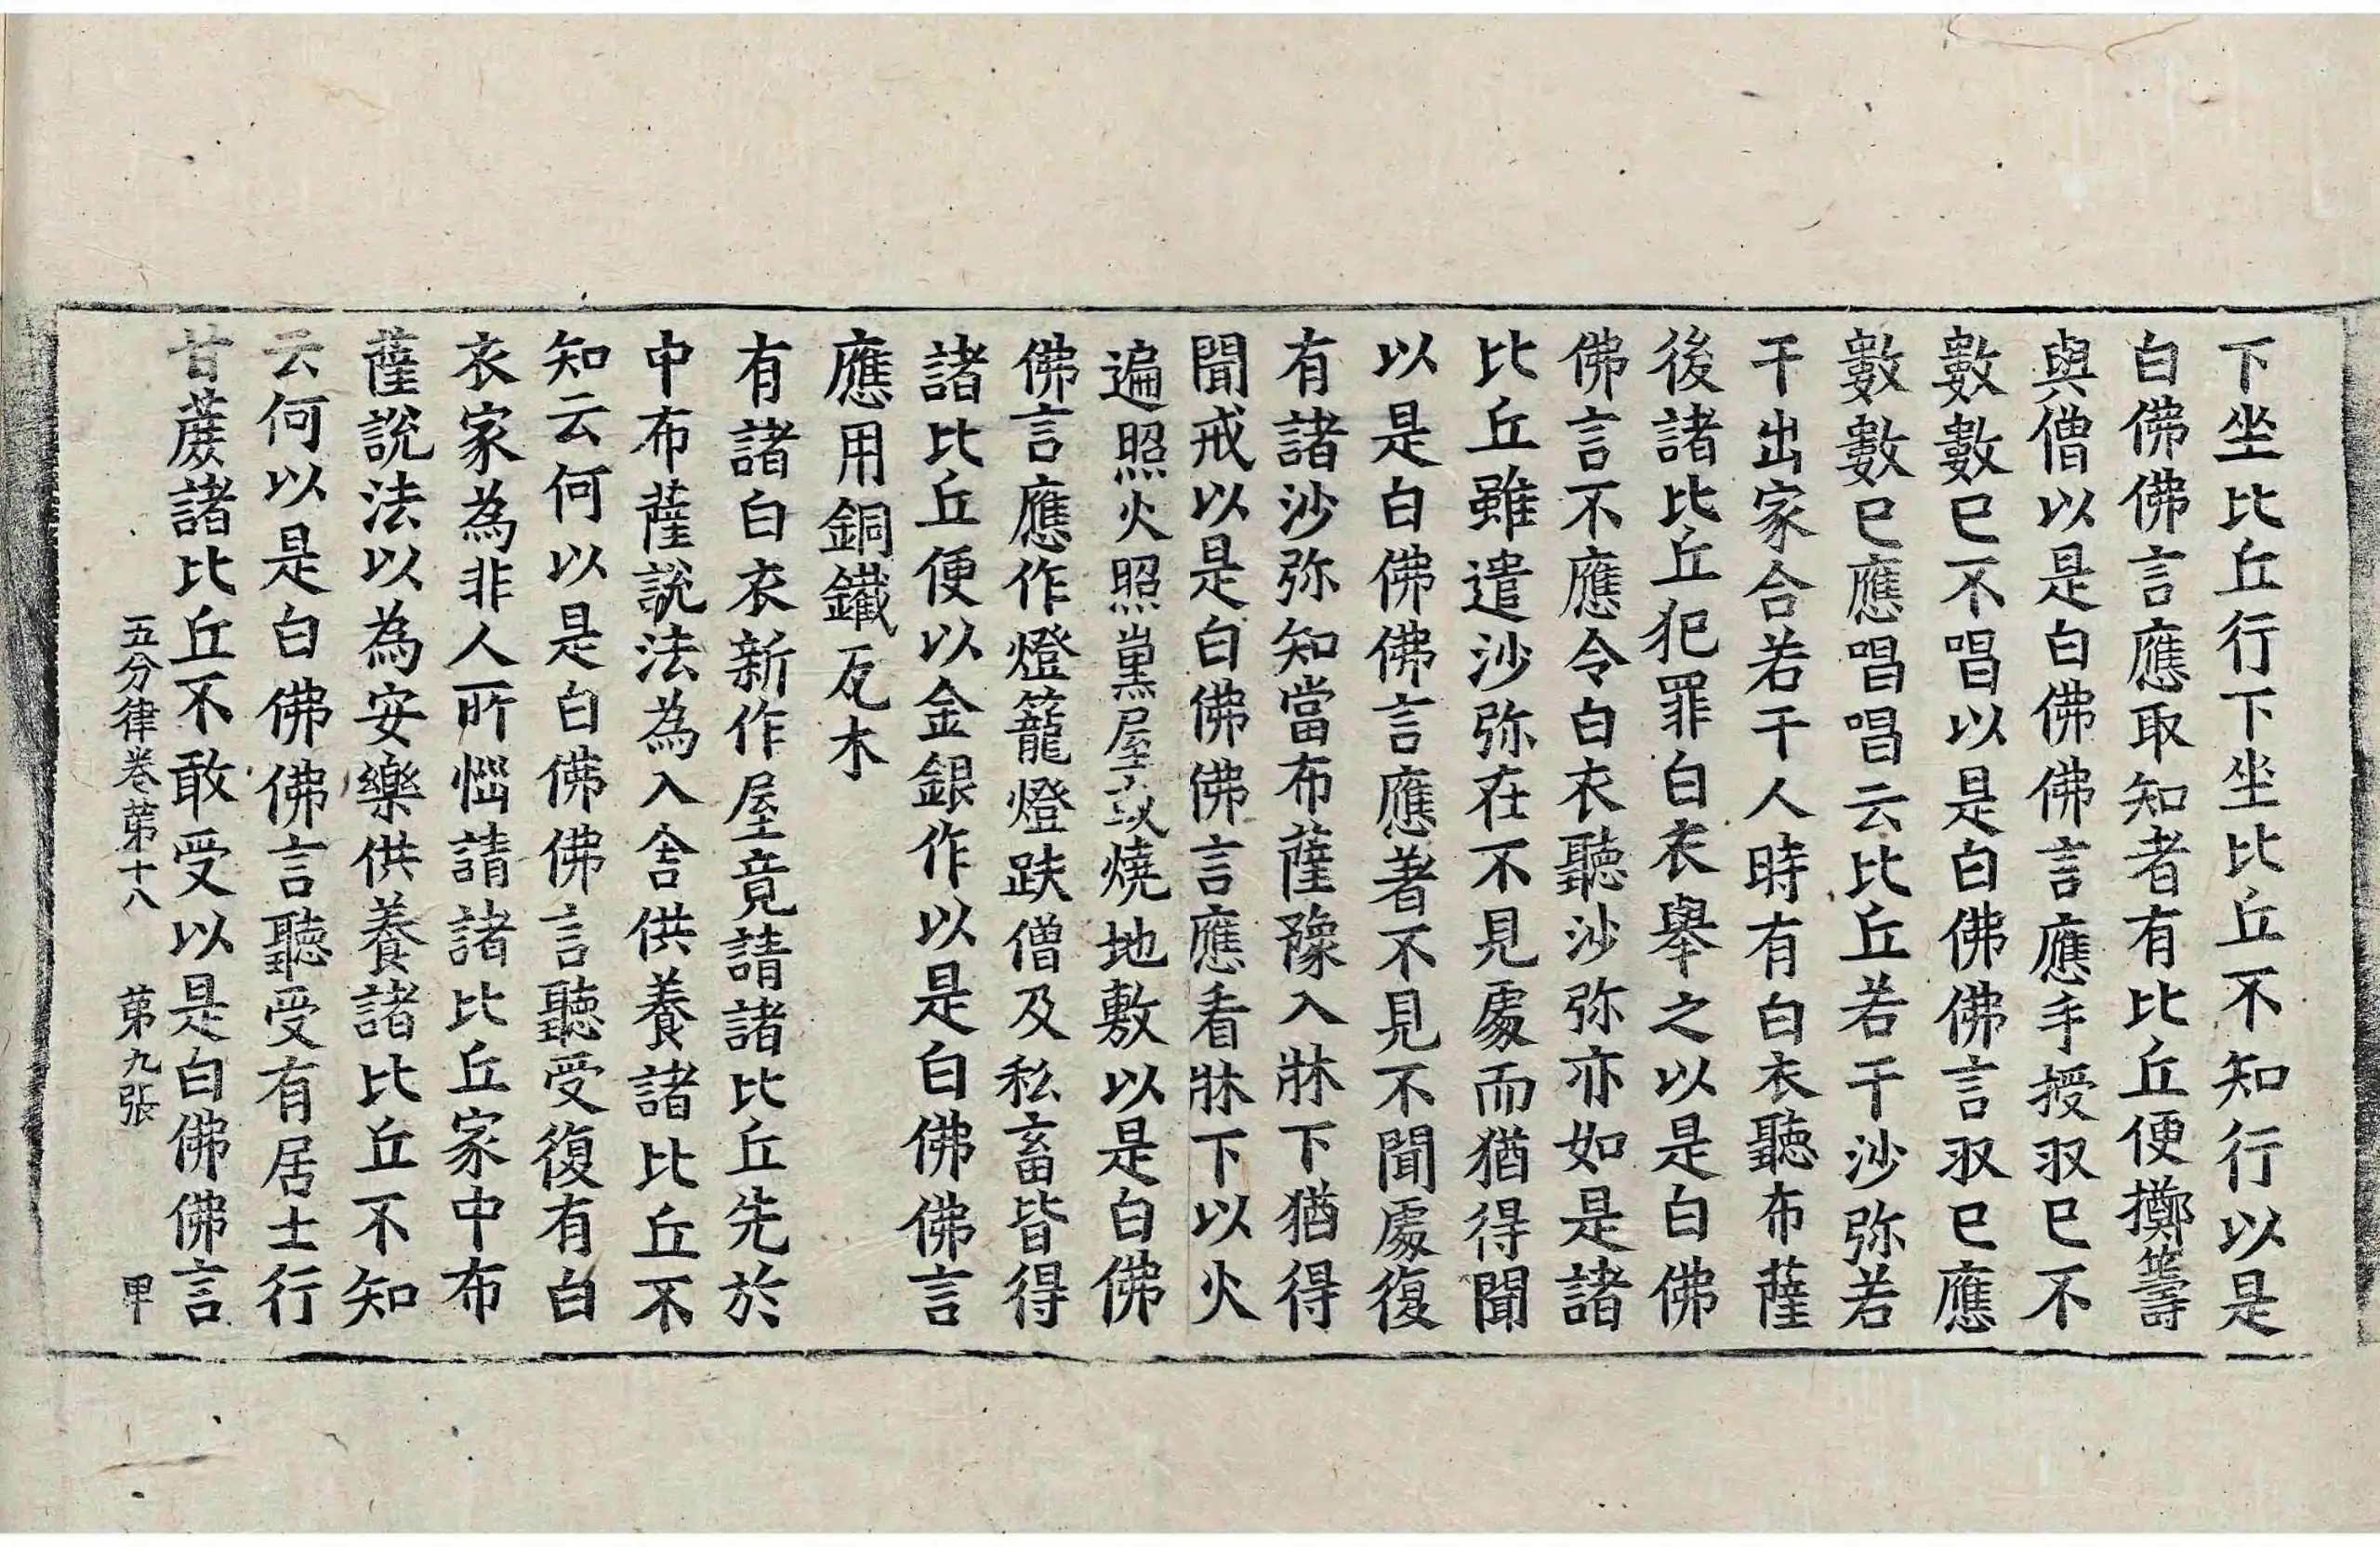 下坐比丘行下下坐比丘不知行以是
白佛佛言應取知者有比丘便擲籌
與僧以是白佛佛言應手授収已不
數數已不唱以是白佛佛言収已應
數數已應唱唱云比丘若干沙弥若
干出家合若干人時有白衣聽布薩
後諸比丘犯罪白衣舉之以是白佛
佛言不應令白衣聽沙弥亦如是諸
比丘雖遣沙弥在不見處而猶得聞
以是白佛佛言應著不見不聞處復
有諸沙弥知當布薩豫入牀下猶得
聞戒以是白佛佛言應看牀下以火
遍照火照熏屋或燒地敷以是白佛
佛言應作燈籠燈趺僧及私畜皆得
諸比丘便以金銀作以是白佛佛言
應用銅鐵瓦木
有諸白衣新作屋竟請諸比丘先於
中布薩說法為入舍供養諸比丘不
知云何以是白佛佛言聽受復有白
衣家為非人所惱請諸比丘家中布
薩說法以為安樂供養諸比丘不知
云何以是白佛佛言聽受有居士行
甘蔗諸比丘不敢受以是白佛佛言
五分律卷苐十八 苐九張 甲